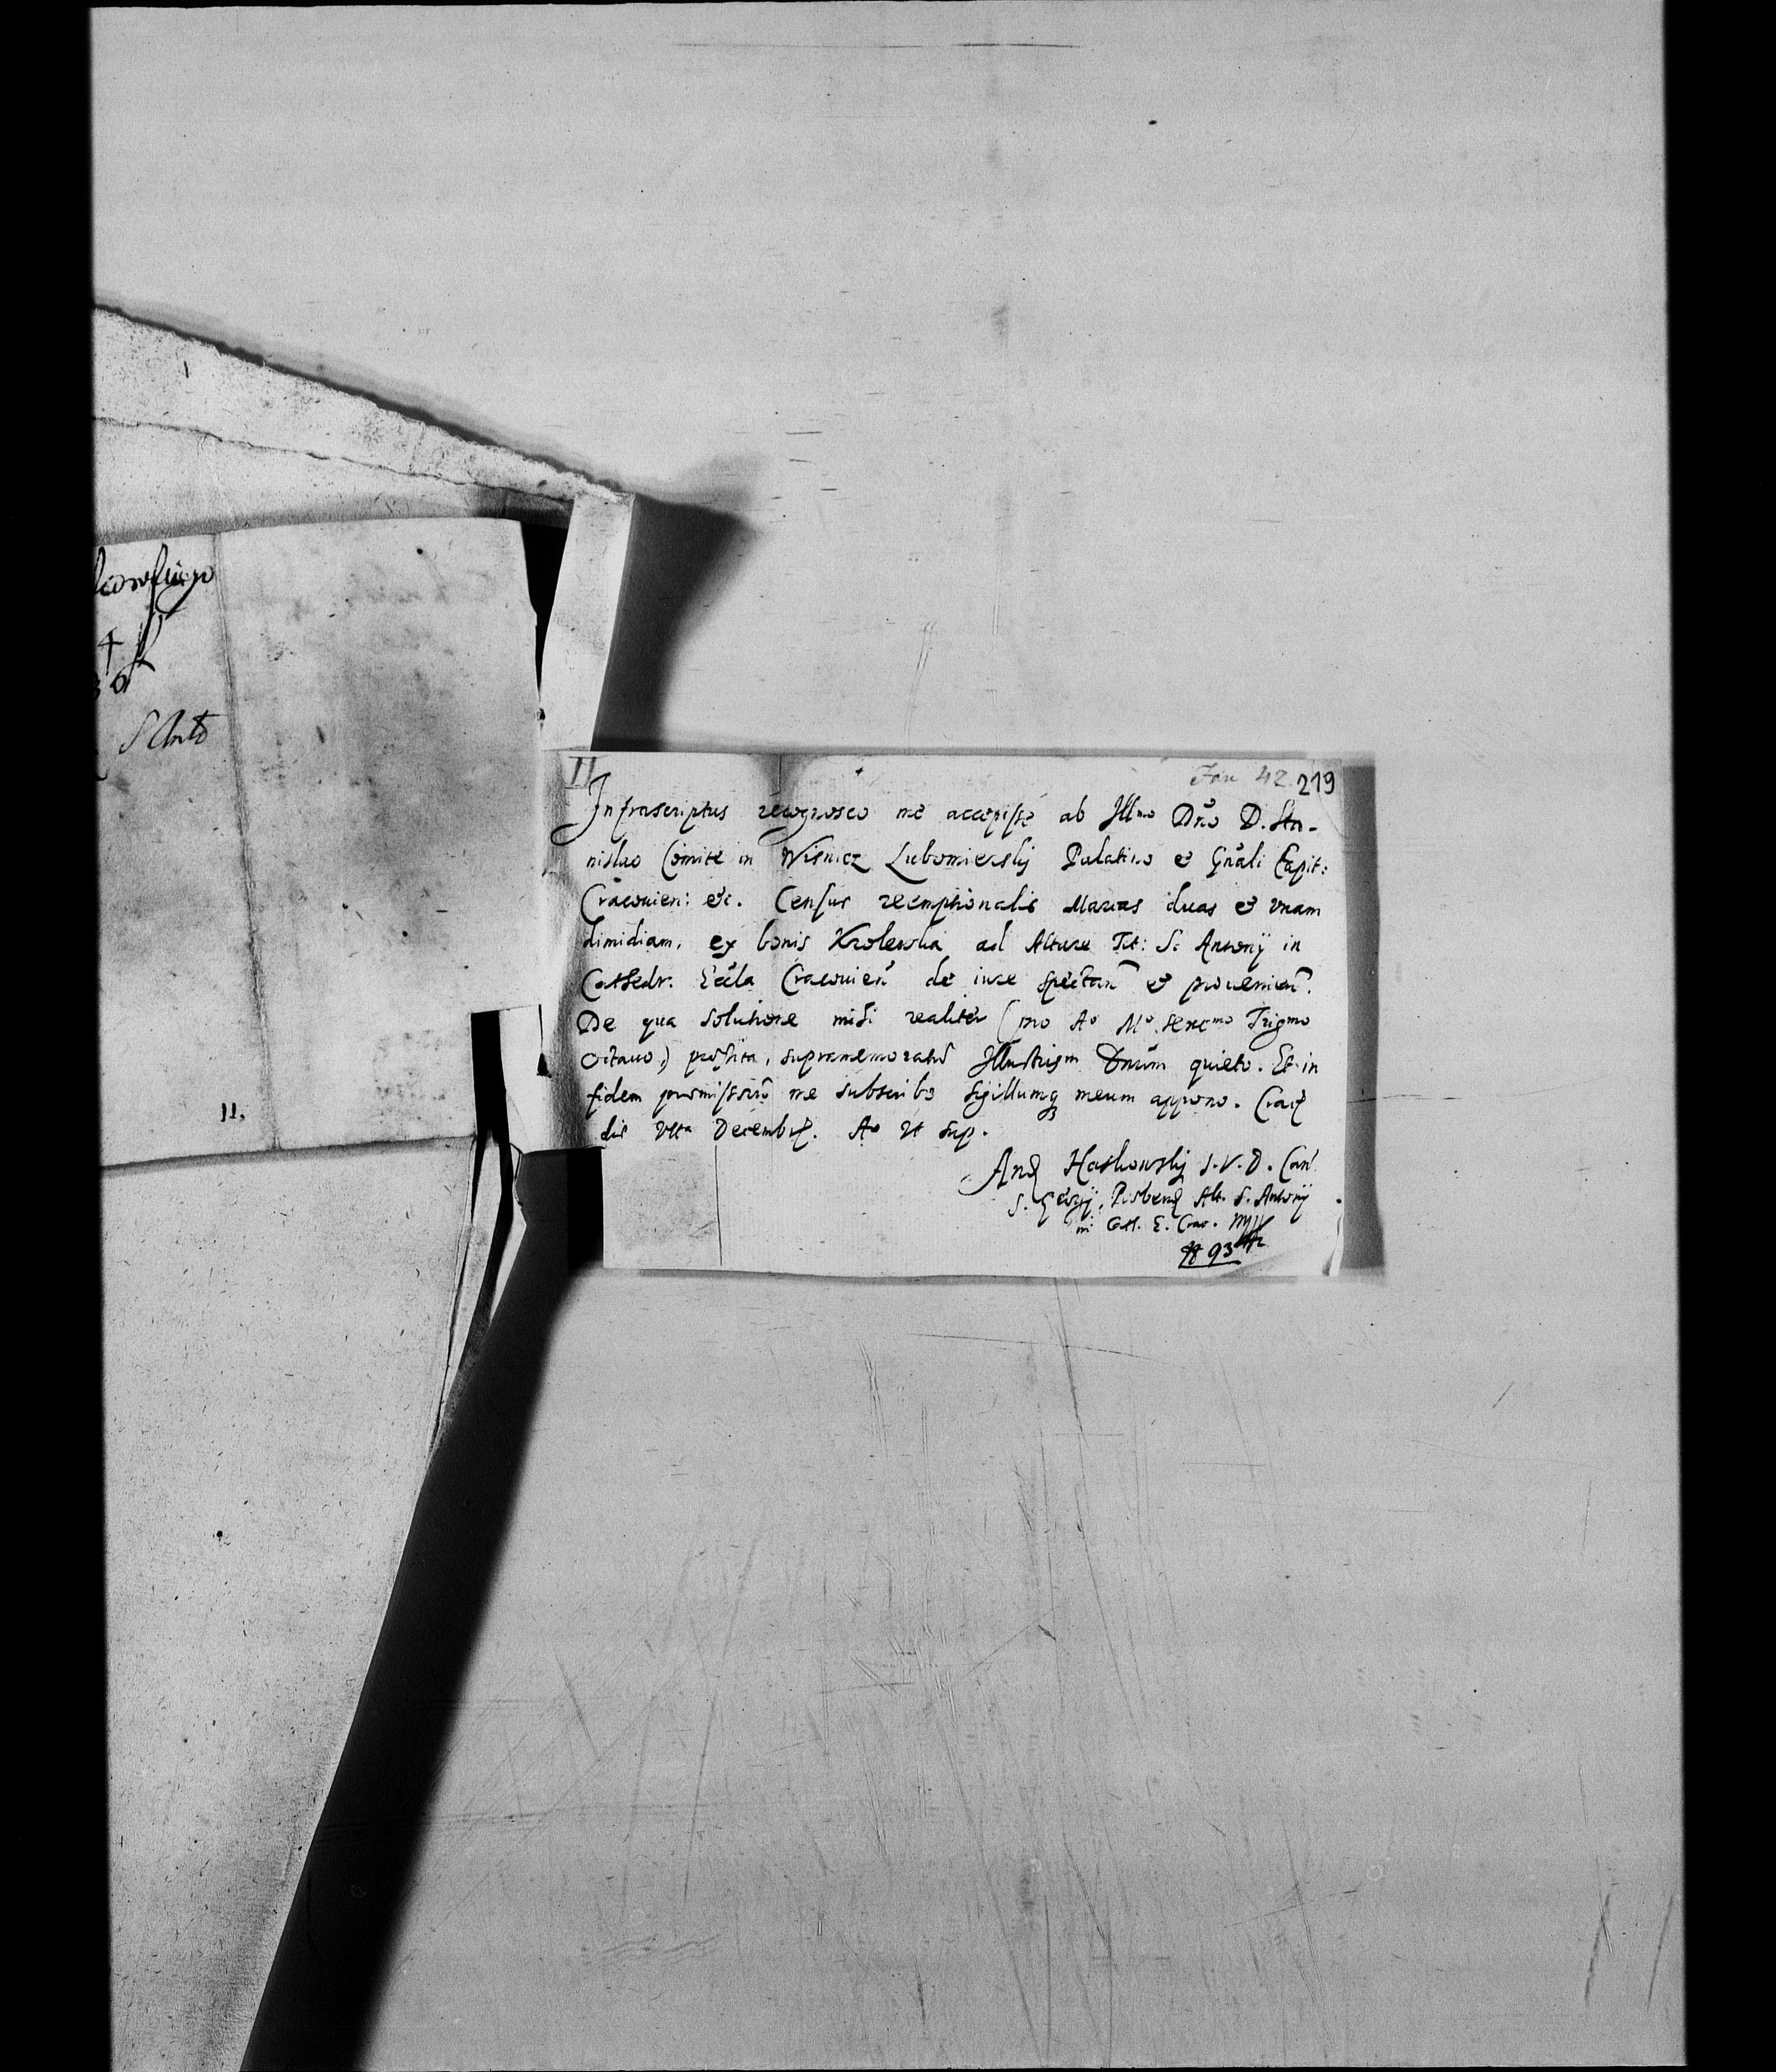 lkowskiego
4
S Anto
11.
II
Fasc 42 219
Infrascriptus recognosco me accepisse ab Illmo Dno D. Sta-
nislao Comite in Wisnicz Lubomierskij Palatino et Gnali Capit:
Cracouien: etc. Census reemptionalis Marcas duas et vnam
dimidiam, ex bonis Krolewka ad Altare Tit: S. Antonij in
Cathedr. Eccla Cracouien de iure spectan et prouenien.
De qua solutione mihi realiter (pro Ao Mo. sexcmo Trigmo
octauo) praestita, supramemoratu Illustrism Dnum quieto. Et in
fidem praemissoru me subscribo sigillumq meum appono. Crac
die Vlta Decembr. Ao vt sup.
And Haskowskij I.V.D. Can
S. Georgij, Prebend Alt. S. Antonij
in Cath. E. Crac. mpp
93